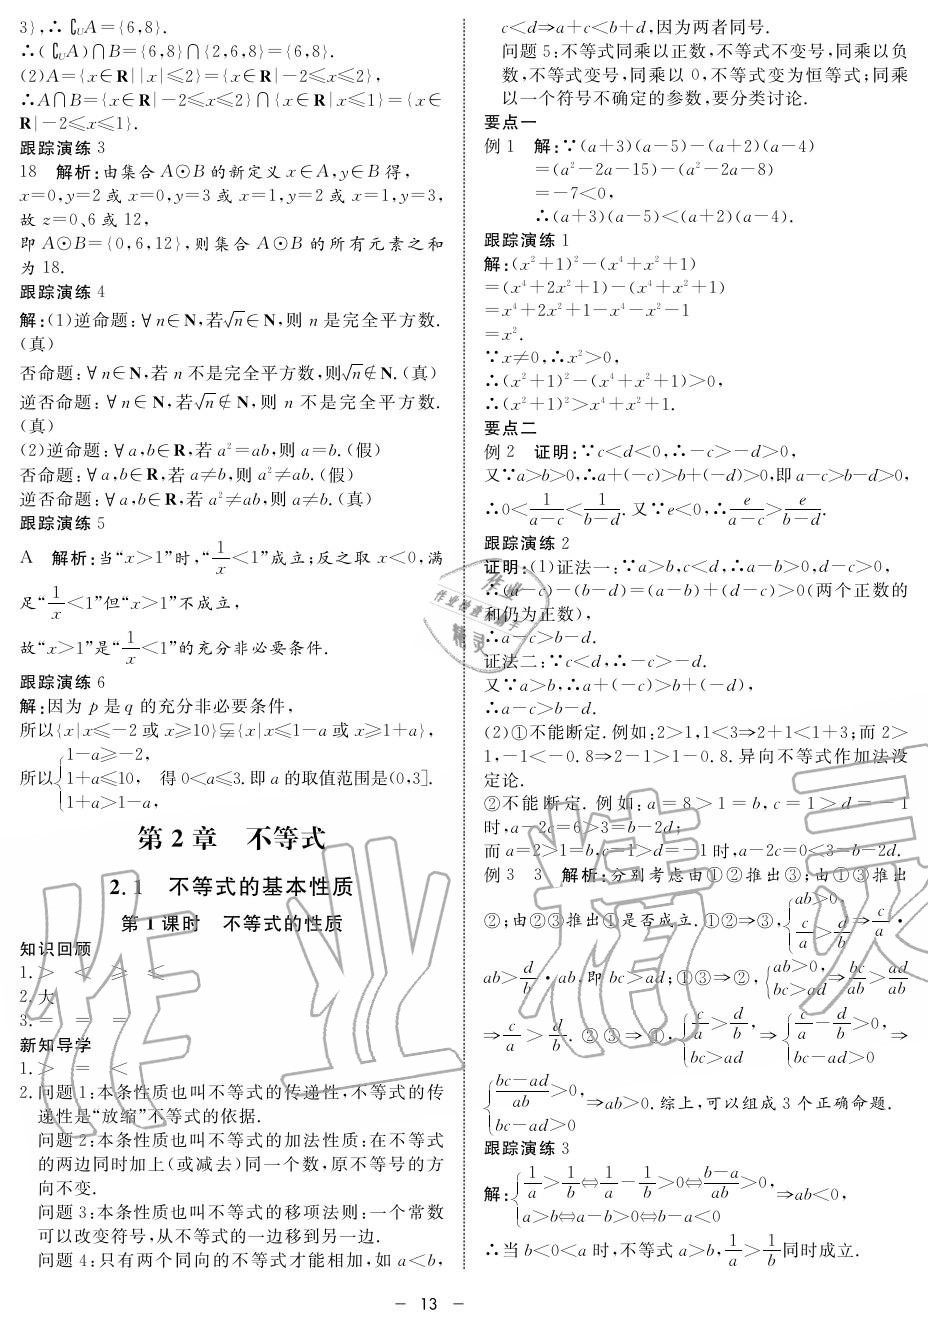 3},∴∁UA={6,8}.
∴(∁UA)∩B={6,8}∩{2,6,8}={6,8}.
(2)A={x∈R||x|≤2}={x∈R|-2≤x≤2},
∴A∩B={x∈R|-2≤x≤2}∩{x∈R|x≤1}={x∈
R|-2≤x≤1}.
跟踪演练3
18 解析:由集合A⊙B的新定义x∈A,y∈B得,
x=0,y=2或x=0,y=3或x=1,y=2或x=1,y=3,
故z=0、6或12,
即A⊙B={0,6,12},则集合A⊙B的所有元素之和
为18.
跟踪演练4
解:(1)逆命题:∀n∈N,若√n∈N,则n是完全平方数.
(真)
否命题:∀n∈N,若n不是完全平方数,则√n∉N.(真)
逆否命题:∀n∈N,若√n∉N,则n不是完全平方数.
(真)
(2)逆命题:∀a,b∈R,若a²=ab,则a=b.(假)
否命题:∀a,b∈R,若a≠b,则a²≠ab.(假)
逆否命题:∀a,b∈R,若a²≠ab,则a≠b.(真)
跟踪演练5
A 解析:当“x>1”时,“1/x<1”成立;反之取x<0,满
足“1/x<1”但“x>1”不成立,
故“x>1”是“1/x<1”的充分非必要条件.
跟踪演练6
解:因为p是q的充分非必要条件,
所以{x|x≤-2或x≥10}⫋{x|x≤1-a或x≥1+a},
所以{1-a≥-2,
1+a≤10, 得0<a≤3.即a的取值范围是(0,3].
1+a>1-a,
第2章 不等式
2.1 不等式的基本性质
第1课时 不等式的性质
知识回顾
1.> < ≥ ≤
2.大
3.= = =
新知导学
1.> = <
2.问题1:本条性质也叫不等式的传递性,不等式的传
递性是“放缩”不等式的依据.
问题2:本条性质也叫不等式的加法性质:在不等式
的两边同时加上(或减去)同一个数,原不等号的方
向不变.
问题3:本条性质也叫不等式的移项法则:一个常数
可以改变符号,从不等式的一边移到另一边.
问题4:只有两个同向的不等式才能相加,如a<b,
c<d⇒a+c<b+d,因为两者同号.
问题5:不等式同乘以正数,不等式不变号,同乘以负
数,不等式变号,同乘以0,不等式变为恒等式;同乘
以一个符号不确定的参数,要分类讨论.
要点一
例1 解:∵(a+3)(a-5)-(a+2)(a-4)
=(a²-2a-15)-(a²-2a-8)
=-7<0,
∴(a+3)(a-5)<(a+2)(a-4).
跟踪演练1
解:(x²+1)²-(x⁴+x²+1)
=(x⁴+2x²+1)-(x⁴+x²+1)
=x⁴+2x²+1-x⁴-x²-1
=x².
∵x≠0,∴x²>0,
∴(x²+1)²-(x⁴+x²+1)>0,
∴(x²+1)²>x⁴+x²+1.
要点二
例2 证明:∵c<d<0,∴-c>-d>0,
又∵a>b>0,∴a+(-c)>b+(-d)>0,即a-c>b-d>0,
∴0<1/(a-c)<1/(b-d).又∵e<0,∴e/(a-c)>e/(b-d).
跟踪演练2
证明:(1)证法一:∵a>b,c<d,∴a-b>0,d-c>0,
∴(a-c)-(b-d)=(a-b)+(d-c)>0(两个正数的
和仍为正数),
∴a-c>b-d.
证法二:∵c<d,∴-c>-d.
又∵a>b,∴a+(-c)>b+(-d),
∴a-c>b-d.
(2)①不能断定.例如:2>1,1<3⇒2+1<1+3;而2>
1,-1<-0.8⇒2-1>1-0.8.异向不等式作加法没
定论.
②不能断定.例如:a=8>1=b,c=1>d=-1
时,a-2c=6>3=b-2d;
而a=2>1=b,c=1>d=-1时,a-2c=0<3=b-2d.
例3 3 解析:分别考虑由①②推出③;由①③推出
②;由②③推出①是否成立.①②⇒③,{ab>0, c/a>d/b ⇒c/a·
ab>d/b·ab,即bc>ad;①③⇒②,{ab>0, bc>ad ⇒bc/ab>ad/ab
⇒c/a>d/b.②③⇒①,{c/a>d/b, bc>ad ⇒{c/a-d/b>0, bc-ad>0 ⇒
{(bc-ad)/ab>0, bc-ad>0 ⇒ab>0.综上,可以组成3个正确命题.
跟踪演练3
解:{1/a>1/b⇔1/a-1/b>0⇔(b-a)/ab>0, a>b⇔a-b>0⇔b-a<0 ⇒ab<0,
∴当b<0<a时,不等式a>b,1/a>1/b同时成立.
- 13 -
作业精灵
作业
作业检查小助手
精灵